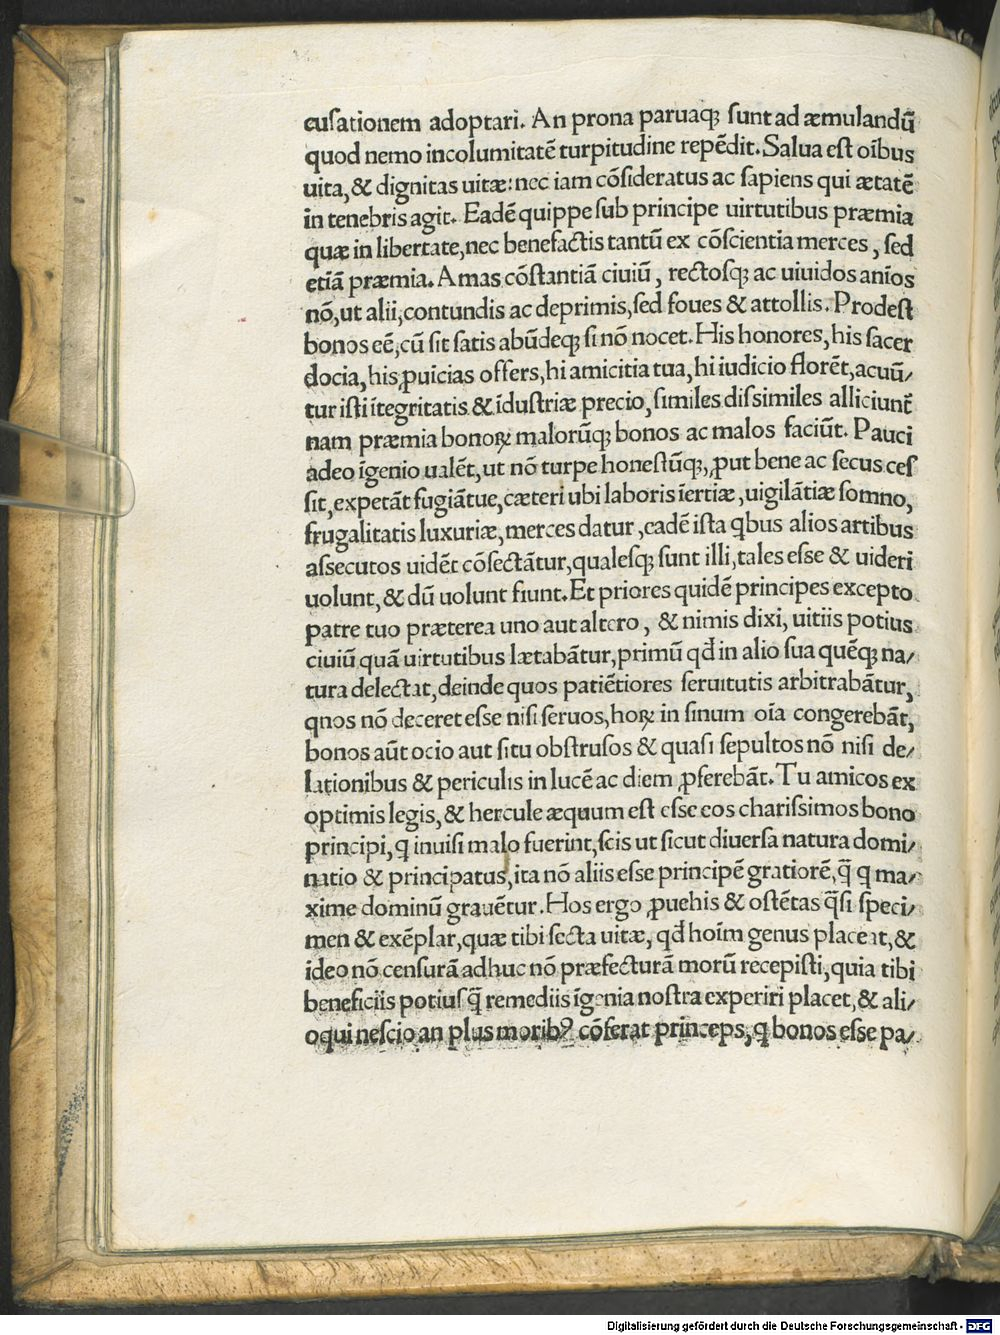 cusationem adoptari. An prona paruaqꝫ sunt ad æmulandũ
quod nemo incolumitatẽ turpitudine repẽdit. Salua est oĩbus
uita, & dignitas uitæ: nec iam cõsideratus ac sapiens qui ætatẽ
in tenebris agit. Eadẽ quippe sub principe uirtutibus præmia
quæ in libertate, nec benefactis tantũ ex cõscientia merces, sed
etiã præmia. Amas cõstantiã ciuiũ, rectosqꝫ ac uiuidos anĩos
nõ, ut alii, contundis ac deprimis, sed foues & attollis. Prodest
bonos eẽ, cũ sit satis abũdeqꝫ si nõ nocet. His honores, his sacer
docia, his ꝓuicias offers, hi amicitia tua, hi iudicio florẽt, acuũ/
tur isti ĩtegritatis & ĩdustriæ precio, similes dissimiles alliciunt̃
nam præmia bonoꝝ malorũqꝫ bonos ac malos faciũt. Pauci
adeo ĩgenio ualẽt, ut nõ turpe honestũqꝫ, ꝓut bene ac secus ces
sit, expetãt fugiãtue, cæteri ubi laboris ĩertiæ, uigilãtiæ somno,
frugalitatis luxuriæ, merces datur, eadẽ ista qbus alios artibus
assecutos uidẽt cõsectãtur, qualesqꝫ sunt illi, tales esse & uideri
uolunt, & dũ uolunt fiunt. Et priores quidẽ principes excepto
patre tuo præterea uno aut altero, & nimis dixi, uitiis potius
ciuiũ quã uirtutibus lætabãtur, primũ qđ in alio sua quẽqꝫ na/
tura delectat, deinde quos patiẽtiores seruitutis arbitrabãtur,
qnos nõ deceret esse nisi seruos, hoꝝ in sinum oĩa congerebãt,
bonos aũt ocio aut situ obstrusos & quasi sepultos nõ nisi de/
lationibus & periculis in lucẽ ac diem ꝓferebãt. Tu amicos ex
optimis legis, & hercule æquum est esse eos charissimos bono
principi, q inuisi malo fuerint, scis ut sicut diuersa natura domi/
natio & principatus, ita nõ aliis esse principẽ gratiorẽ, q̃ q ma/
xime dominũ grauẽtur. Hos ergo ꝓuehis & ostẽtas q̃si speci/
men & exẽplar, quæ tibi secta uitæ, qđ hoĩm genus placeat, &
ideo nõ censurã adhuc nõ præfecturã morũ recepisti, quia tibi
beneficiis potius q̃ remediis ĩgenia nostra experiri placet, & ali/
oqui nescio an plus moribꝰ cõferat princeps, q bonos esse pa/
Digitalisierung gefördert durch die Deutsche Forschungsgemeinschaft - DFG